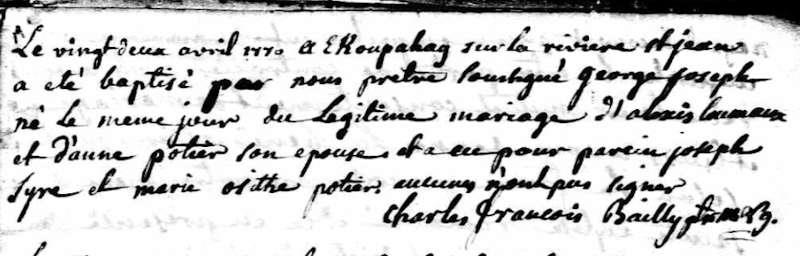 Le vingt deux avril 1770 a EKoupahag sur la riviere st jean
a eté baptisé par nous pretre soussigné george joseph
né le meme jour du Legitime mariage d'alexis
et d'anne potier son epouse et a eu pour parein joseph
Syre et marie osithe potier aucuns n'ont pus signer
Charles francois Bailly ptre